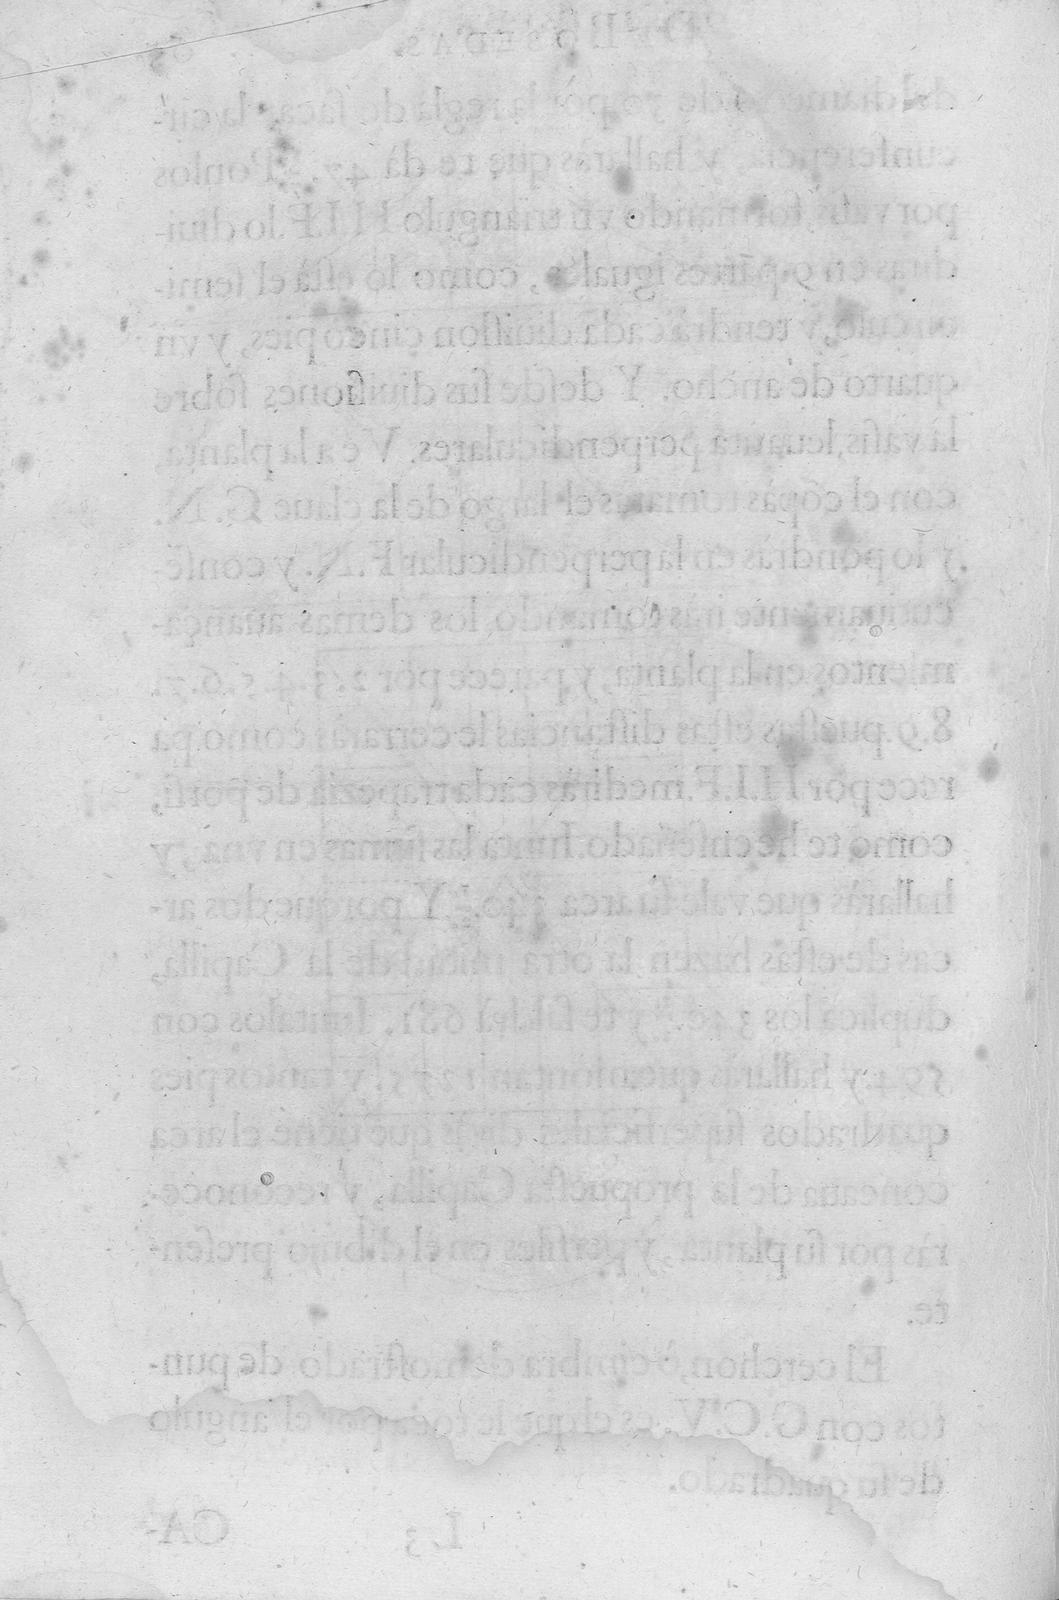 DE BOBEDAS.
del diametro de 30 por la regla de sacar la cir-
cunferencia, y hallaràs que te dà 47. Ponlos
por vasis, formando vn triangulo H I F. lo diui-
diras en 9. partes iguales, como lo està el semi-
circulo, y tendrà cada diuiſion cinco pies, y vn
quarto de ancho. Y desde ſus diuiſiones ſobre
la vaſis, leuanta perpendiculares. Ve a la planta,
con el cõpàs tomaràs el largo de la claue G. N.
y lo pondràs en la perpendicular F. N. y conſe-
cutiuamente iràs tomando los demas auança-
mientos en la planta, y parece por 2. 3. 4. 5. 6. 7.
8. 9. pueſtas eſtas diſtancias le cerraràs como pa
rece por H. I. F. mediràs cada trapezia de por ſi,
como te he enſeñado. Iunta las ſumas en vna, y
hallaràs que vale ſu area 340. Y porque dos ar-
cas de eſtas hazen la otra mitad de la Capilla,
duplica los 340. y te ſaldrà 681. Iuntalos con
594. y hallaràs que montan 1275. y tantos pies
quadrados ſuperficiales diràs que tiene el area
concaua de la propueſta Capilla, y reconoce-
ràs por ſu planta, y perfiles en el dibujo preſen-
te.
El cerchon, ò cimbra demoſtrado de pun-
tos con G. C. V. es el que le toca por el angulo
de ſu quadrado.
L 3 CA-